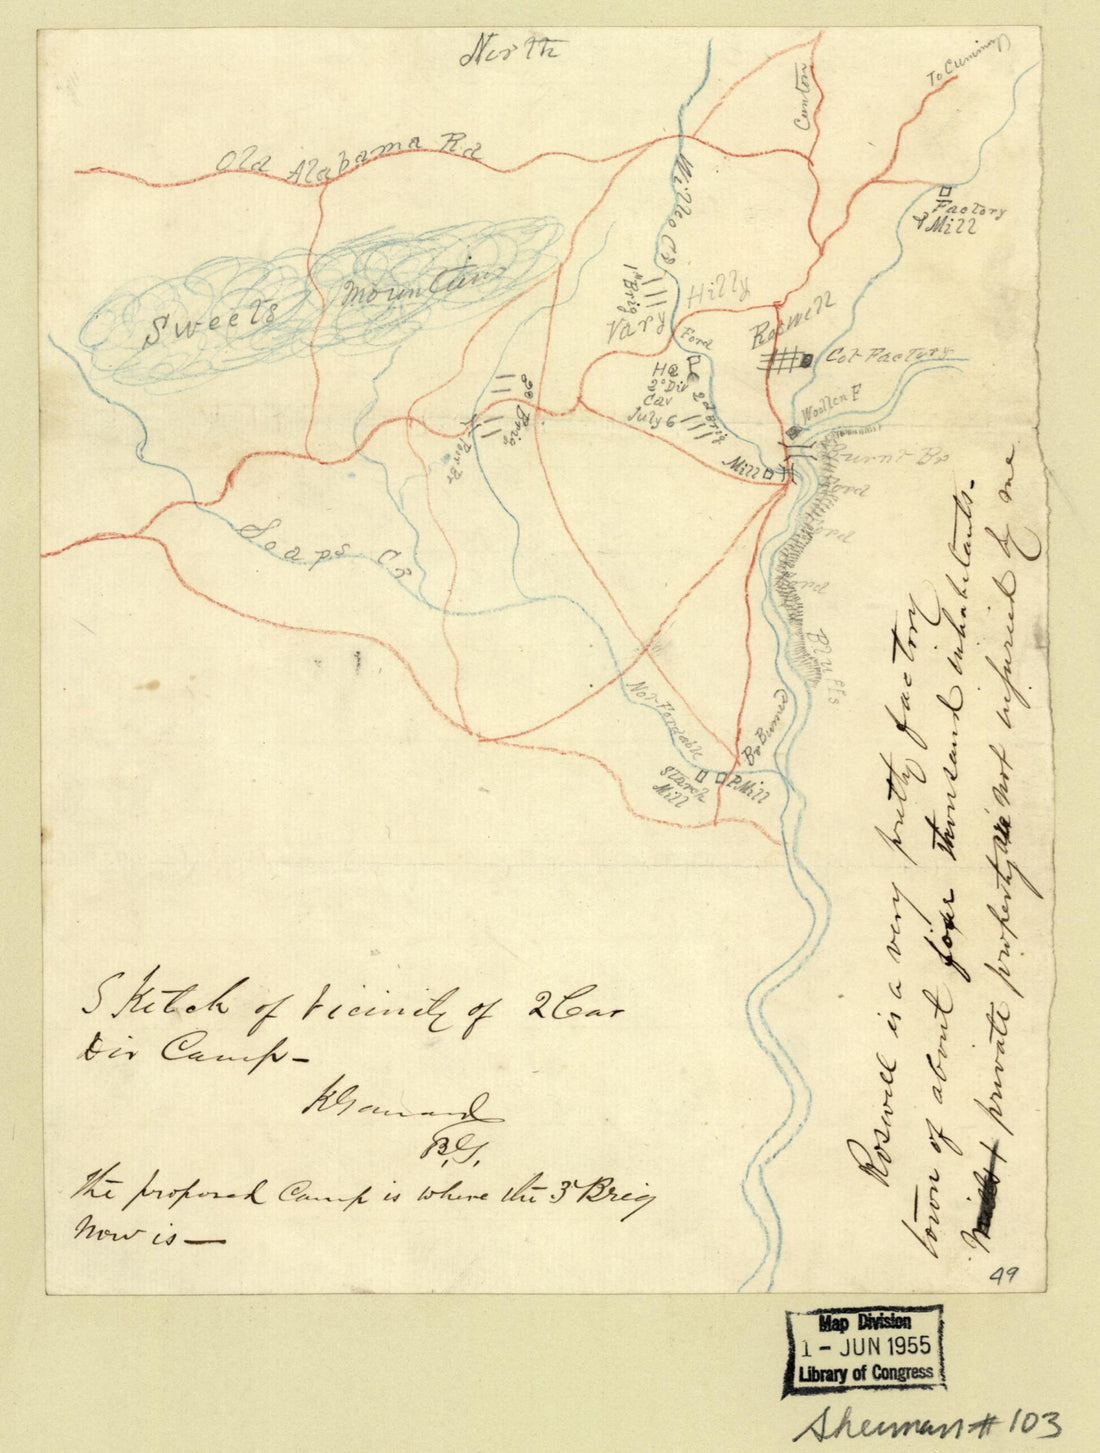 North
Old Alabama Rd
Canton
To Cuming
Factory
& Mill
Willeo Cr
1st Brig
Vary
Hilly
Ford
Roswell
Cot Factory
Woollen F
Sweets Mountain
Hq
2d Div
Cav
July 6
2d Brig
3d Brig
Mill
Burnt Br
Ford
Ford
Ford
Bluffs
Soaps Cr
Not Fordable
Br Burned
Starch
Mill
P. Mill
Roswell is a very pretty factory
town of about four thousand inhabitants.
Mills & private property are not injured by me
Sketch of Vicinity of 2 Cav
Div Camp—
K Garrard
B.G.
The proposed Camp is where the 3d Brig
Now is—
49
Map Division
1 - JUN 1955
Library of Congress
Sherman # 103